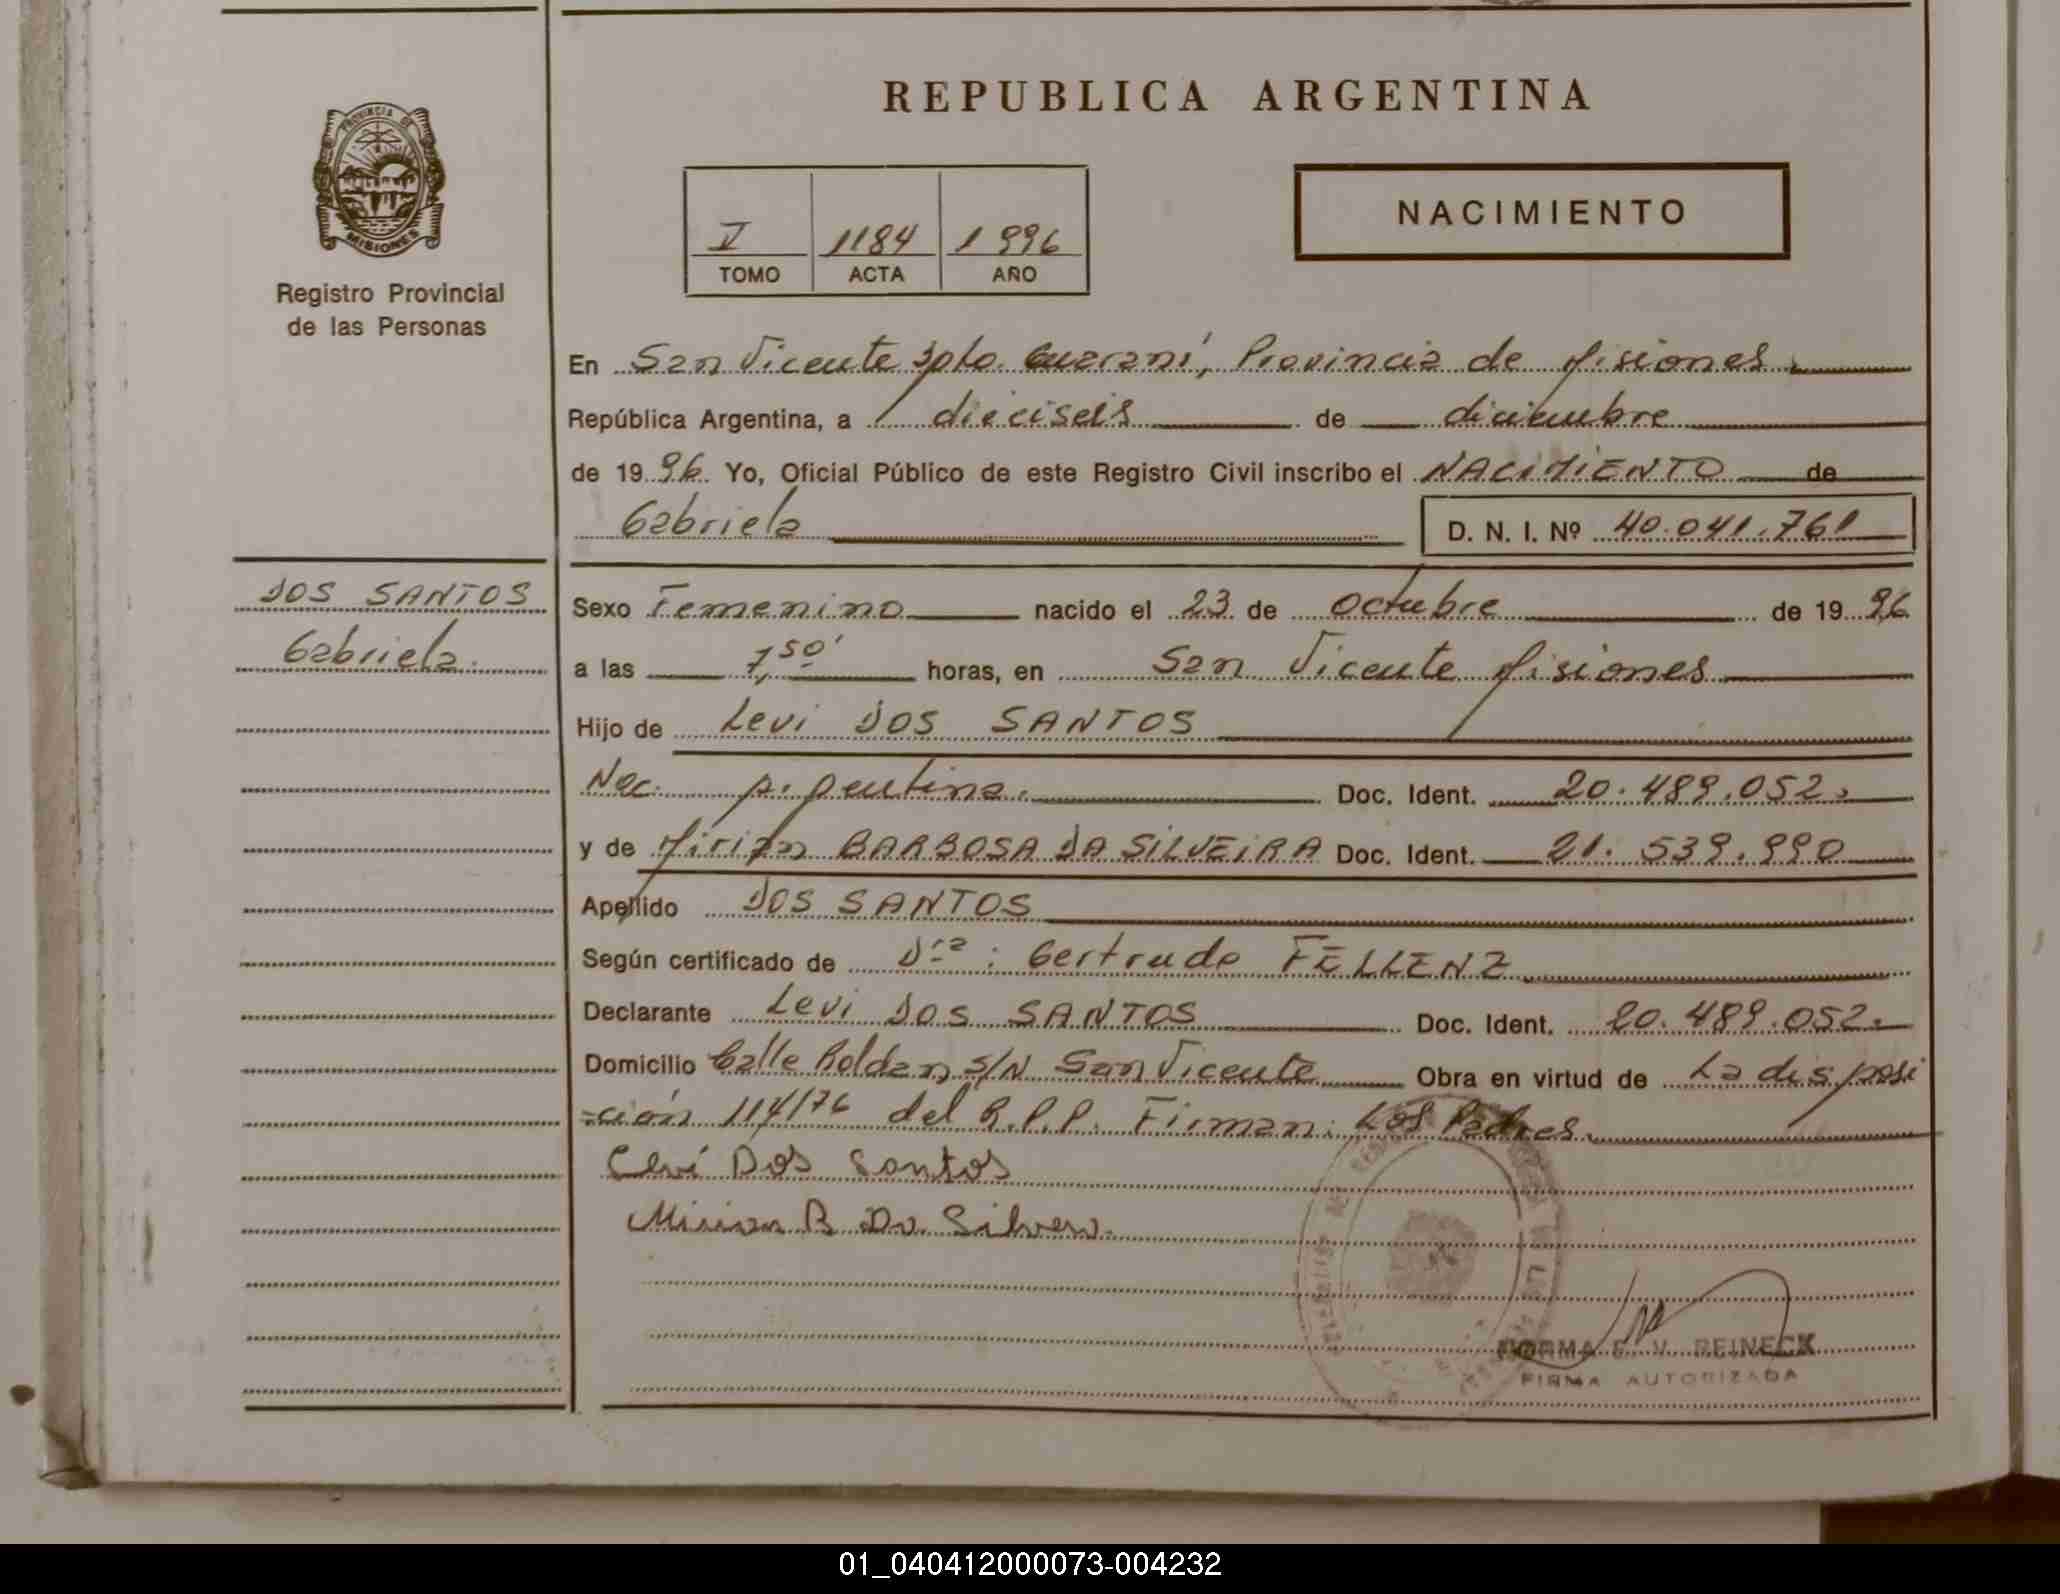 REPUBLICA ARGENTINA
PROVINCIA DE
MISIONES
Registro Provincial
de las Personas
V 1184 1996
TOMO ACTA AÑO
NACIMIENTO
En San Vicente Dpto. Guaraní, Provincia de Misiones
República Argentina, a dieciseis de diciembre
de 1996 Yo, Oficial Público de este Registro Civil inscribo el NACIMIENTO de
Gabriela D. N. I. Nº 40.041.761
DOS SANTOS
Gabriela
Sexo Femenino nacido el 23 de octubre de 1996
a las 7,50' horas, en San Vicente Misiones
Hijo de Levi DOS SANTOS
Nac. Argentina. Doc. Ident. 20.489.052.
y de Mirian BARBOSA DA SILVEIRA Doc. Ident. 21.539.990
Apellido DOS SANTOS
Según certificado de Dra: Gertrudo FELLENZ
Declarante Levi DOS SANTOS Doc. Ident. 20.489.052.
Domicilio Calle Roldan S/N San Vicente Obra en virtud de La disposi
=ción 114/76 del R.P.P. Firman: Los Padres
Levi Dos Santos
Mirian B Da Silvera.
NORMA E. V. REINECK
FIRMA AUTORIZADA
01_040412000073-004232